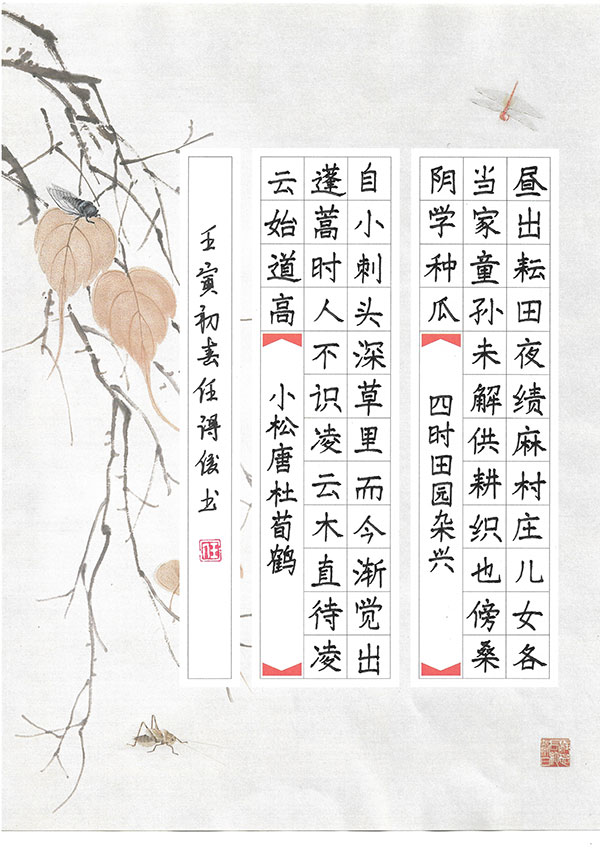 昼出耘田夜绩麻村庄儿女各
当家童孙未解供耕织也傍桑
阴学种瓜
四时田园杂兴
自小刺头深草里而今渐觉出
蓬蒿时人不识凌云木直待凌
云始道高
小松唐杜荀鹤
壬寅初春任得俊书